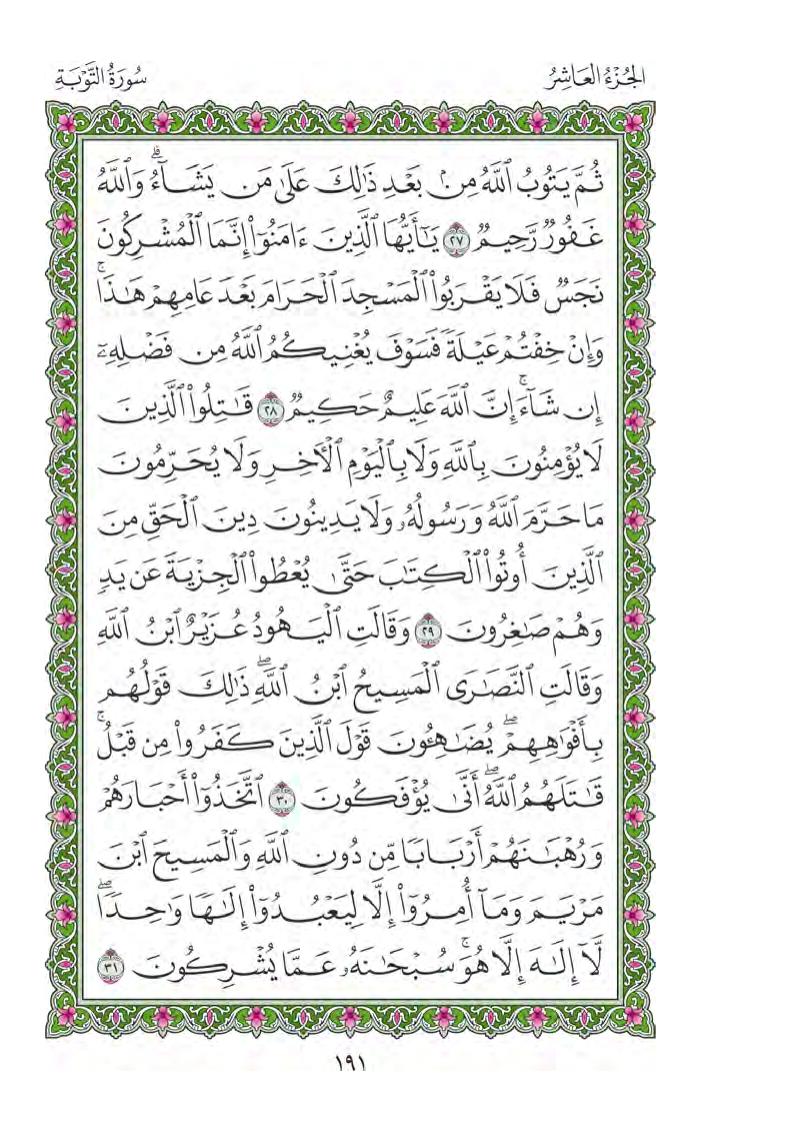 الجُزْءُ العَاشِرُ
سُورَةُ التَّوْبَةِ
ثُمَّ يَتُوبُ ٱللَّهُ مِنۢ بَعْدِ ذَٰلِكَ عَلَىٰ مَن يَشَآءُۗ وَٱللَّهُ
غَفُورٌ رَّحِيمٌ ٢٧ يَٰٓأَيُّهَا ٱلَّذِينَ ءَامَنُوٓا۟ إِنَّمَا ٱلْمُشْرِكُونَ
نَجَسٌ فَلَا يَقْرَبُوا۟ ٱلْمَسْجِدَ ٱلْحَرَامَ بَعْدَ عَامِهِمْ هَٰذَاۚ
وَإِنْ خِفْتُمْ عَيْلَةً فَسَوْفَ يُغْنِيكُمُ ٱللَّهُ مِن فَضْلِهِۦٓ
إِن شَآءَۚ إِنَّ ٱللَّهَ عَلِيمٌ حَكِيمٌ ٢٨ قَٰتِلُوا۟ ٱلَّذِينَ
لَا يُؤْمِنُونَ بِٱللَّهِ وَلَا بِٱلْيَوْمِ ٱلْأَخِرِ وَلَا يُحَرِّمُونَ
مَا حَرَّمَ ٱللَّهُ وَرَسُولُهُۥ وَلَا يَدِينُونَ دِينَ ٱلْحَقِّ مِنَ
ٱلَّذِينَ أُوتُوا۟ ٱلْكِتَٰبَ حَتَّىٰ يُعْطُوا۟ ٱلْجِزْيَةَ عَن يَدٍ
وَهُمْ صَٰغِرُونَ ٢٩ وَقَالَتِ ٱلْيَهُودُ عُزَيْرٌ ٱبْنُ ٱللَّهِ
وَقَالَتِ ٱلنَّصَٰرَى ٱلْمَسِيحُ ٱبْنُ ٱللَّهِۖ ذَٰلِكَ قَوْلُهُم
بِأَفْوَٰهِهِمْۖ يُضَٰهِـُٔونَ قَوْلَ ٱلَّذِينَ كَفَرُوا۟ مِن قَبْلُۚ
قَٰتَلَهُمُ ٱللَّهُۖ أَنَّىٰ يُؤْفَكُونَ ٣٠ ٱتَّخَذُوٓا۟ أَحْبَارَهُمْ
وَرُهْبَٰنَهُمْ أَرْبَابًا مِّن دُونِ ٱللَّهِ وَٱلْمَسِيحَ ٱبْنَ
مَرْيَمَ وَمَآ أُمِرُوٓا۟ إِلَّا لِيَعْبُدُوٓا۟ إِلَٰهًا وَٰحِدًاۖ
لَّآ إِلَٰهَ إِلَّا هُوَۚ سُبْحَٰنَهُۥ عَمَّا يُشْرِكُونَ ٣١
١٩١